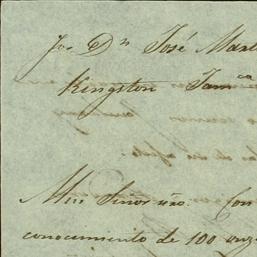 Jn. Dn José Mart
Kingston Jamca
Muy Señor mio. Con
conocimiento de 100 onz